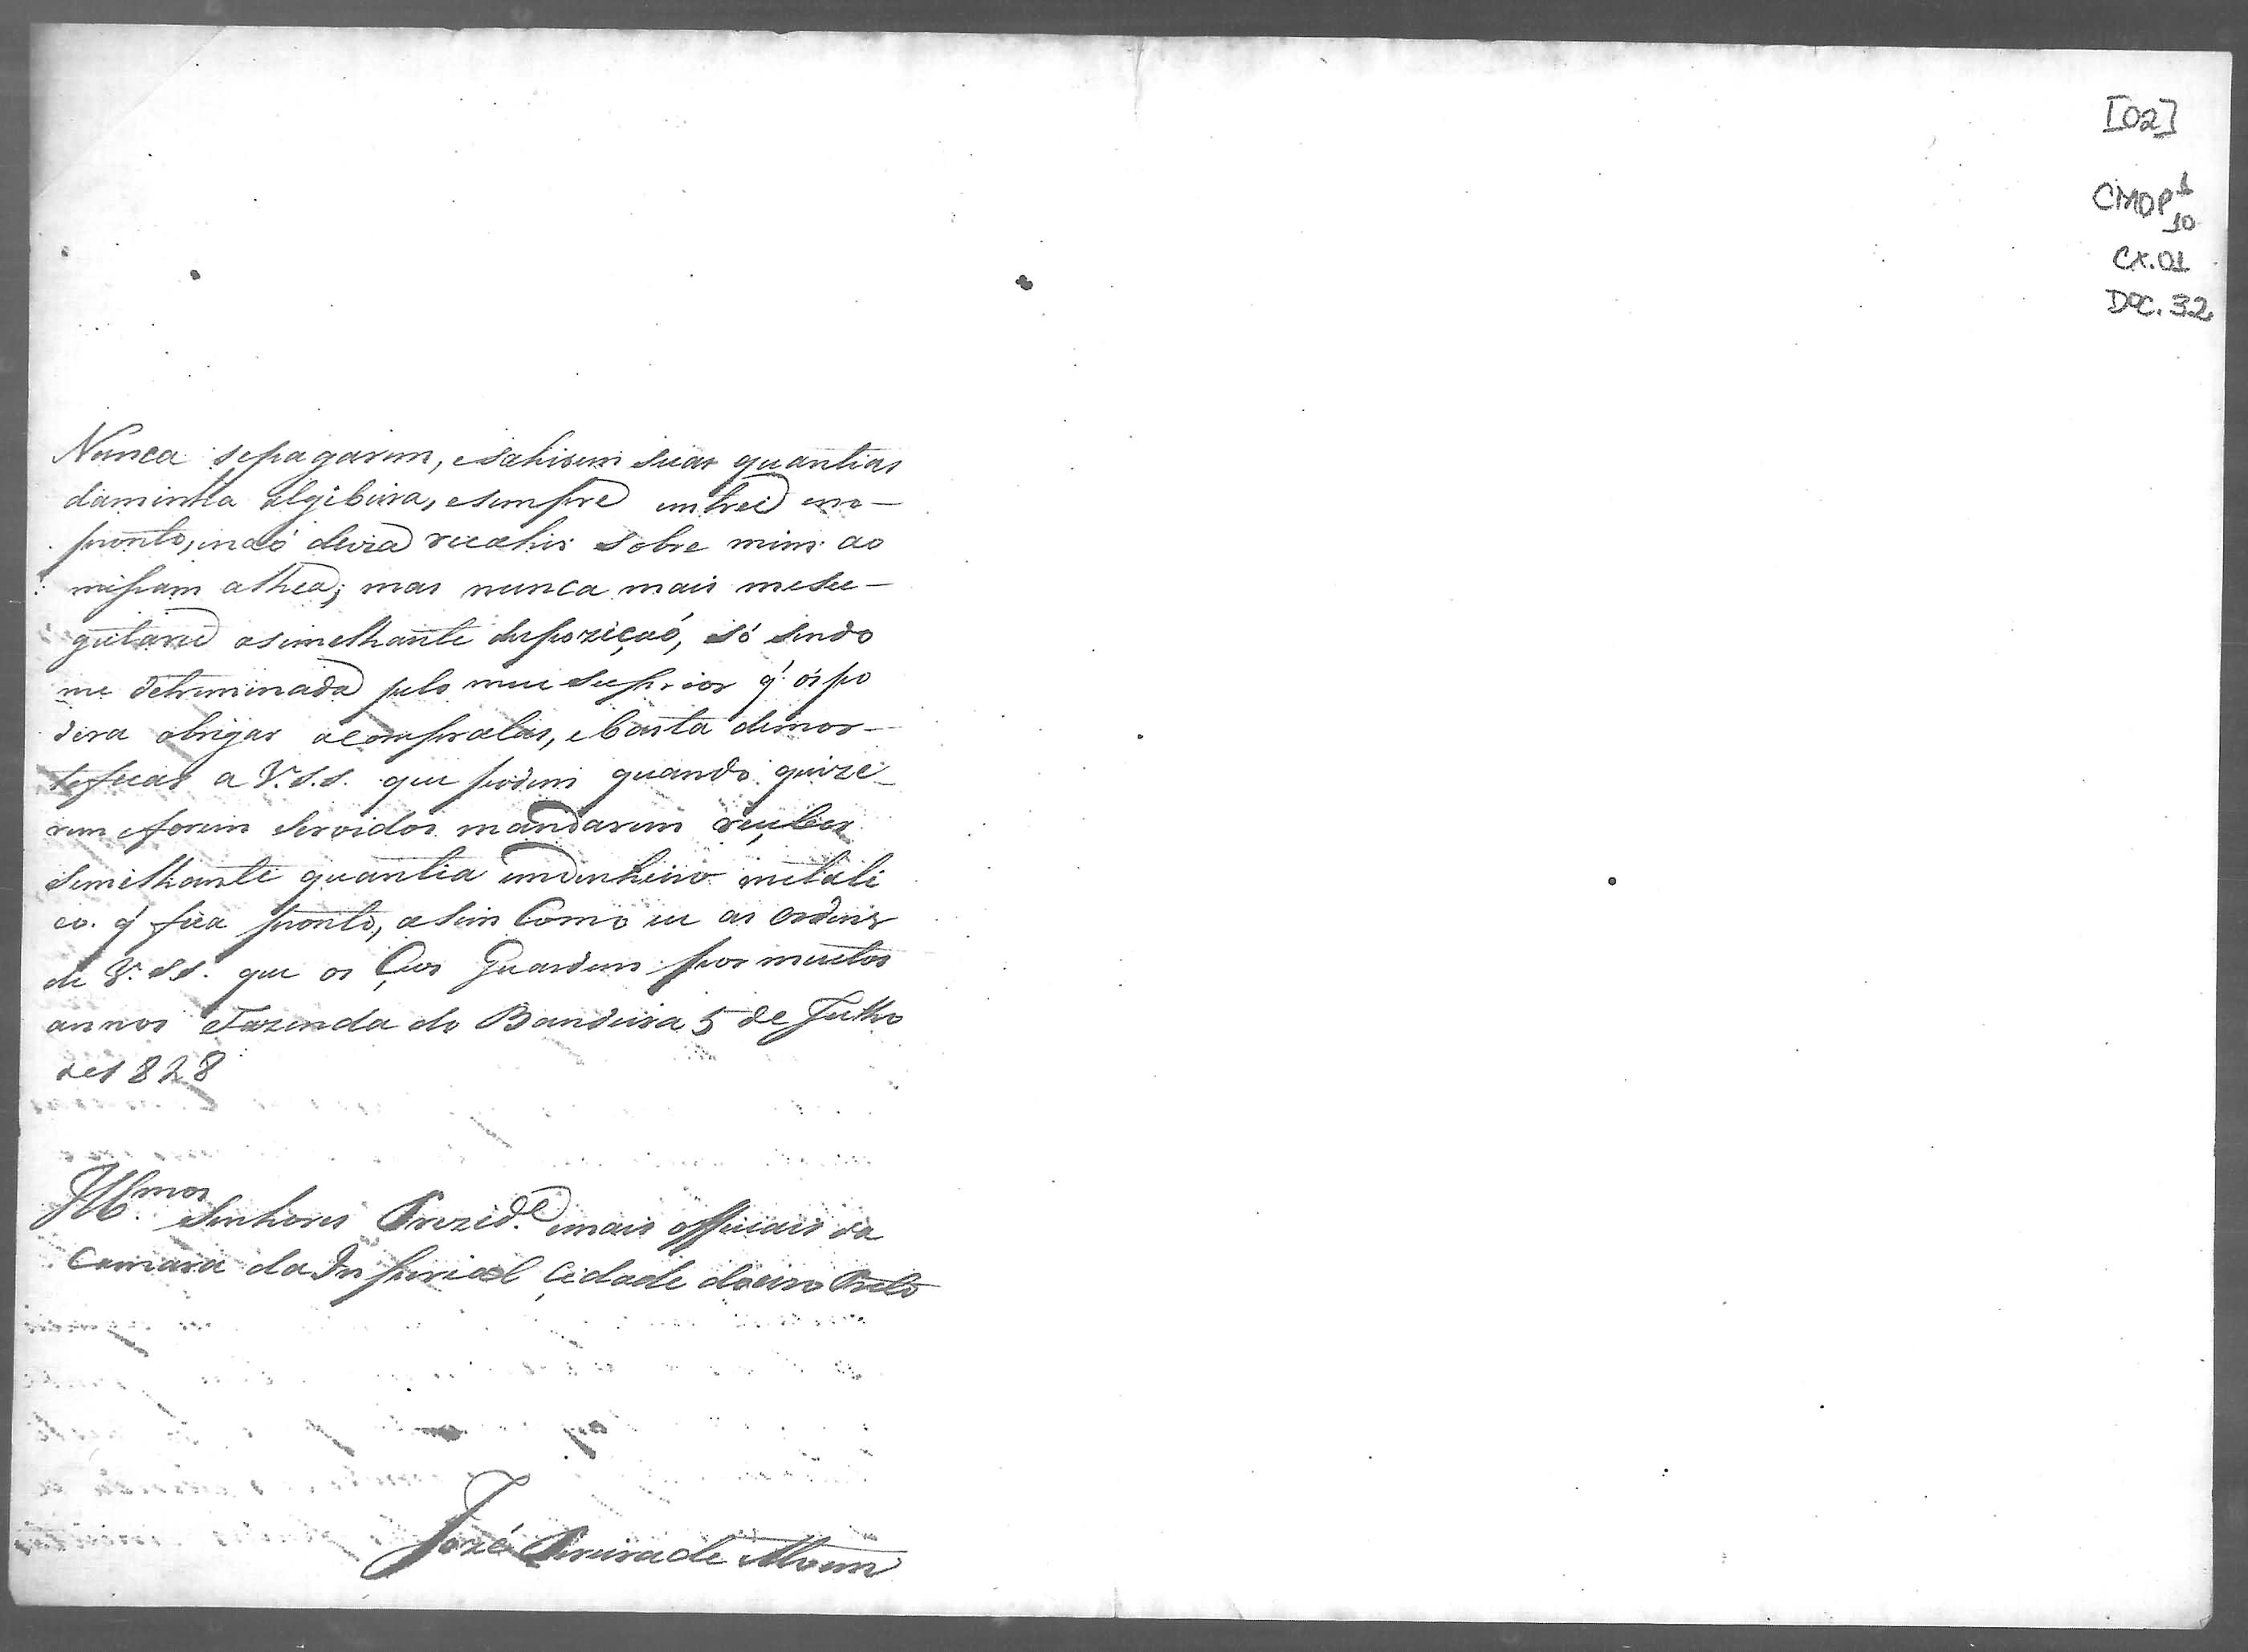 Nunca sepagarem, esahirem suas quantias
daminha algibeira, esempre entrei com
pronto, enaó devia recahir sobre mim ao
misam alhea; mas nunca mais mesu-
geitarei asimelhante despoziçaó, só sendo
me detreminada pelo meu suprior q' ós po
dera obrigar acompralas, ebasta demor-
teficar a V.S.S. que podem quando quize-
rem eforem Servidos mandarem reçeber
Semelhante quantia emdinheiro metali
co. q' fica pronto, asim Como eu as ordens
de V.S.S. que os Çeos Guardem por muitos
annos Fazenda do Bandeira 5 de Julho
de1828
Illmos. Senhores Prezide. emais officiais da
Camara da Imperial Çidade doouro Preto
Jozé Pereirade Alvim
[02]
CMOP 1
10
CX.01
DOC.32